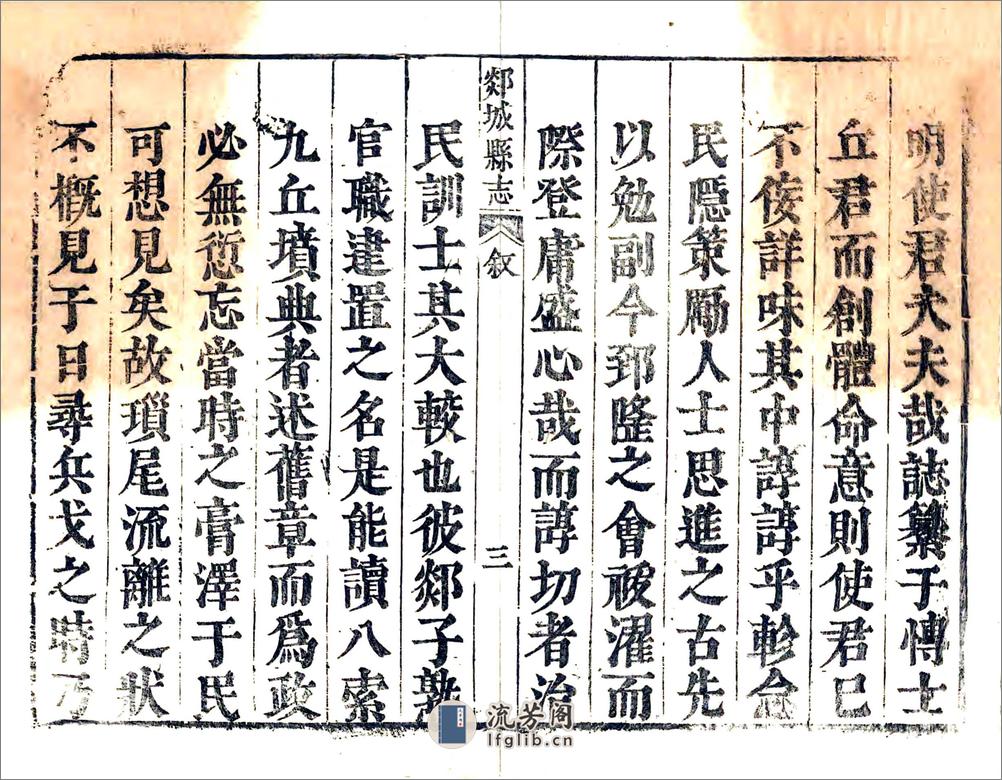 明使君大夫哉誌纂于博士
丘君而創體命意則使君已
不佞詳味其中諄諄乎軫念
民隱策勵人士思進之古先
以勉副今郅隆之會祓濯而
際登庸盛心哉而諄切者治
郯城縣志 敘 三
民訓士其大較也彼郯子孰
官職建置之名是能讀八索
九丘墳典者述舊章而為政
必無愆忘當時之膏澤于民
可想見矣故瑣尾流離之狀
不概見于日尋兵戈之時乃
流芳阁
lfglib.cn